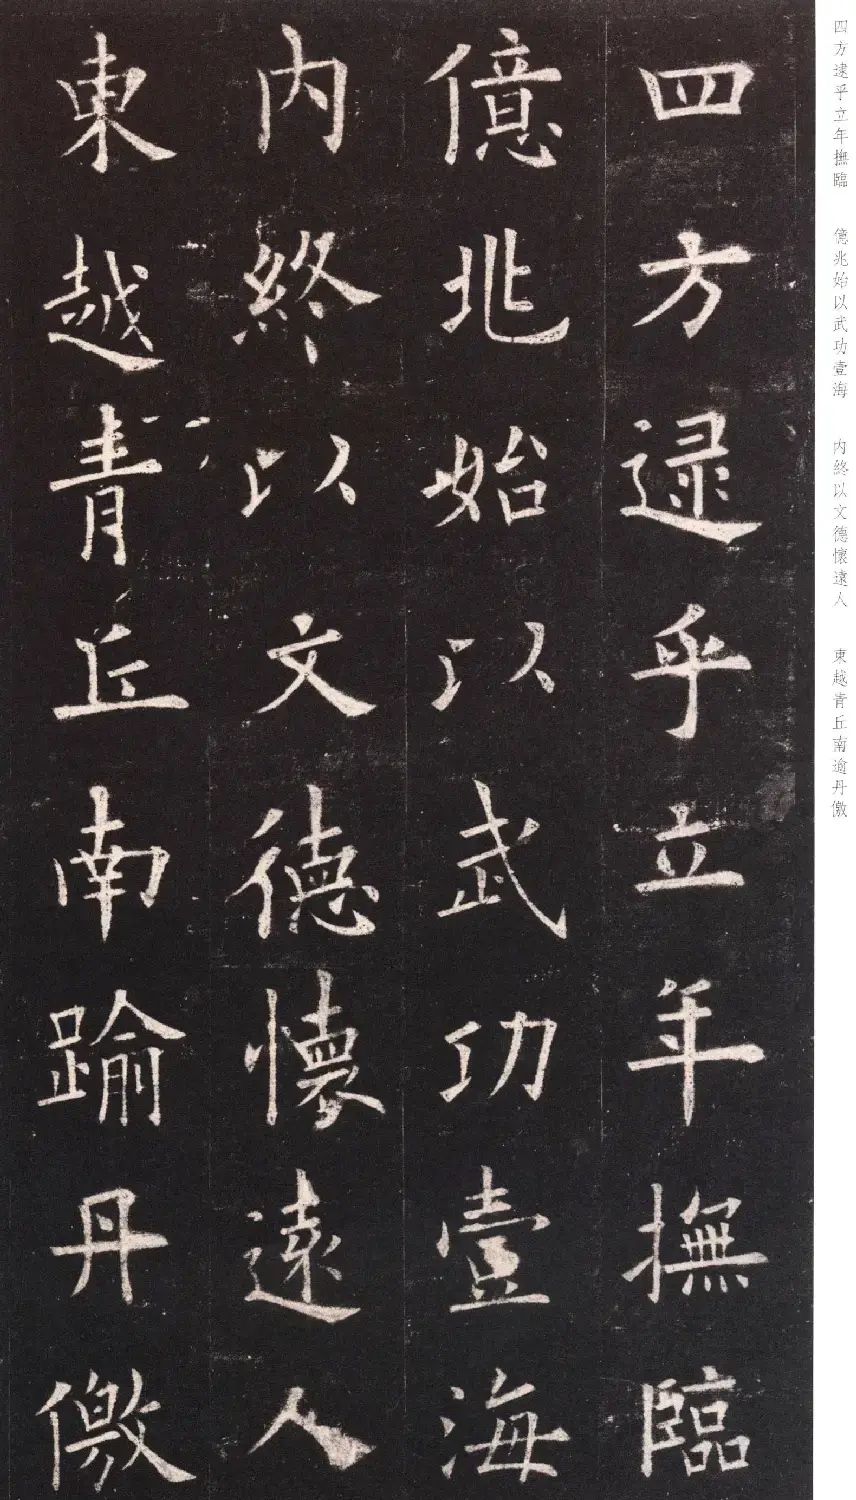 四方逮乎立年撫臨
億兆始以武功壹海
内終以文德懷遠人
東越青丘南踰丹徼
四方逮乎立年撫臨 億兆始以武功壹海 内終以文德懷遠人 東越青丘南逾丹儌